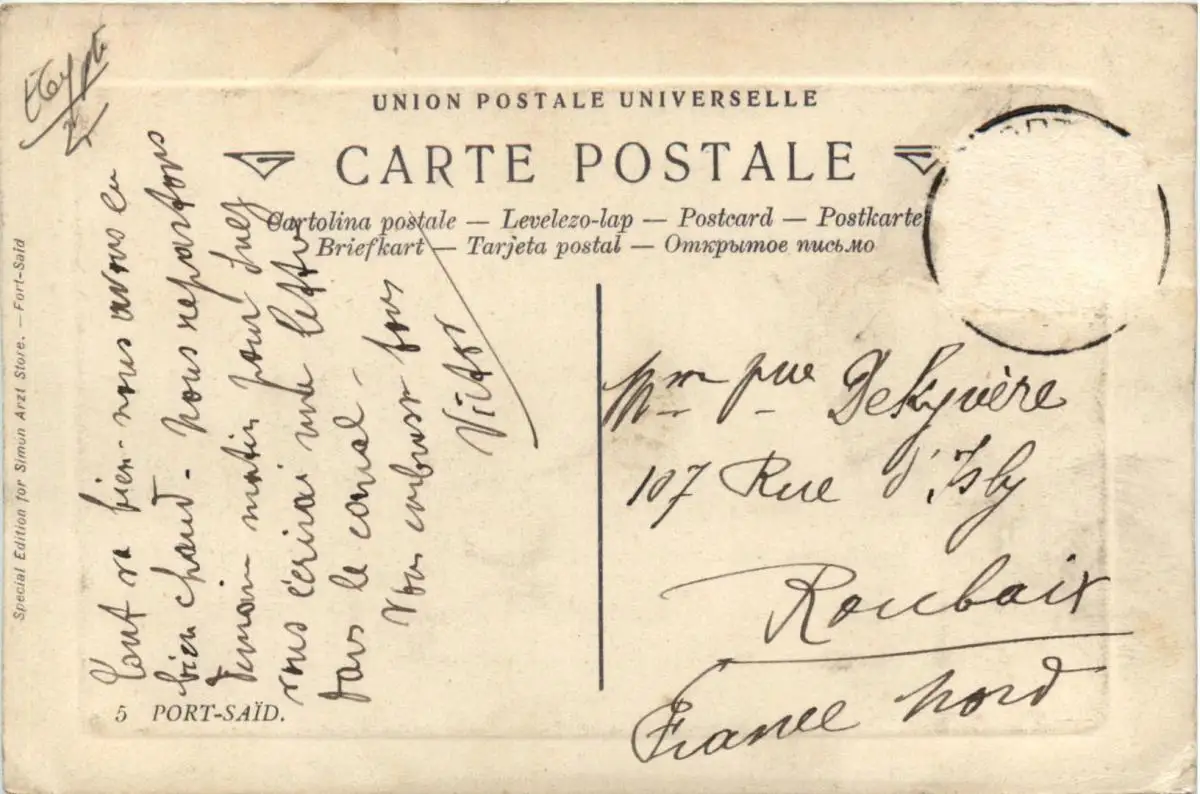 Egypte
UNION POSTALE UNIVERSELLE
CARTE POSTALE
Cartolina postale — Levelezo-lap — Postcard — Postkarte
Briefkart — Tarjeta postal — Открытое письмо
Special Edition for Simon Arzt Store. — Port-Said
Tout va bien - nous avons eu
bien chaud - nous repartons
demain matin pour Suez
vous écrirai une lettre
dans le canal -
Vous embrasse tous
Victor
Mme
DeKyvère
107 Rue d'Isly
Roubaix
France Nord
5 PORT-SAÏD.